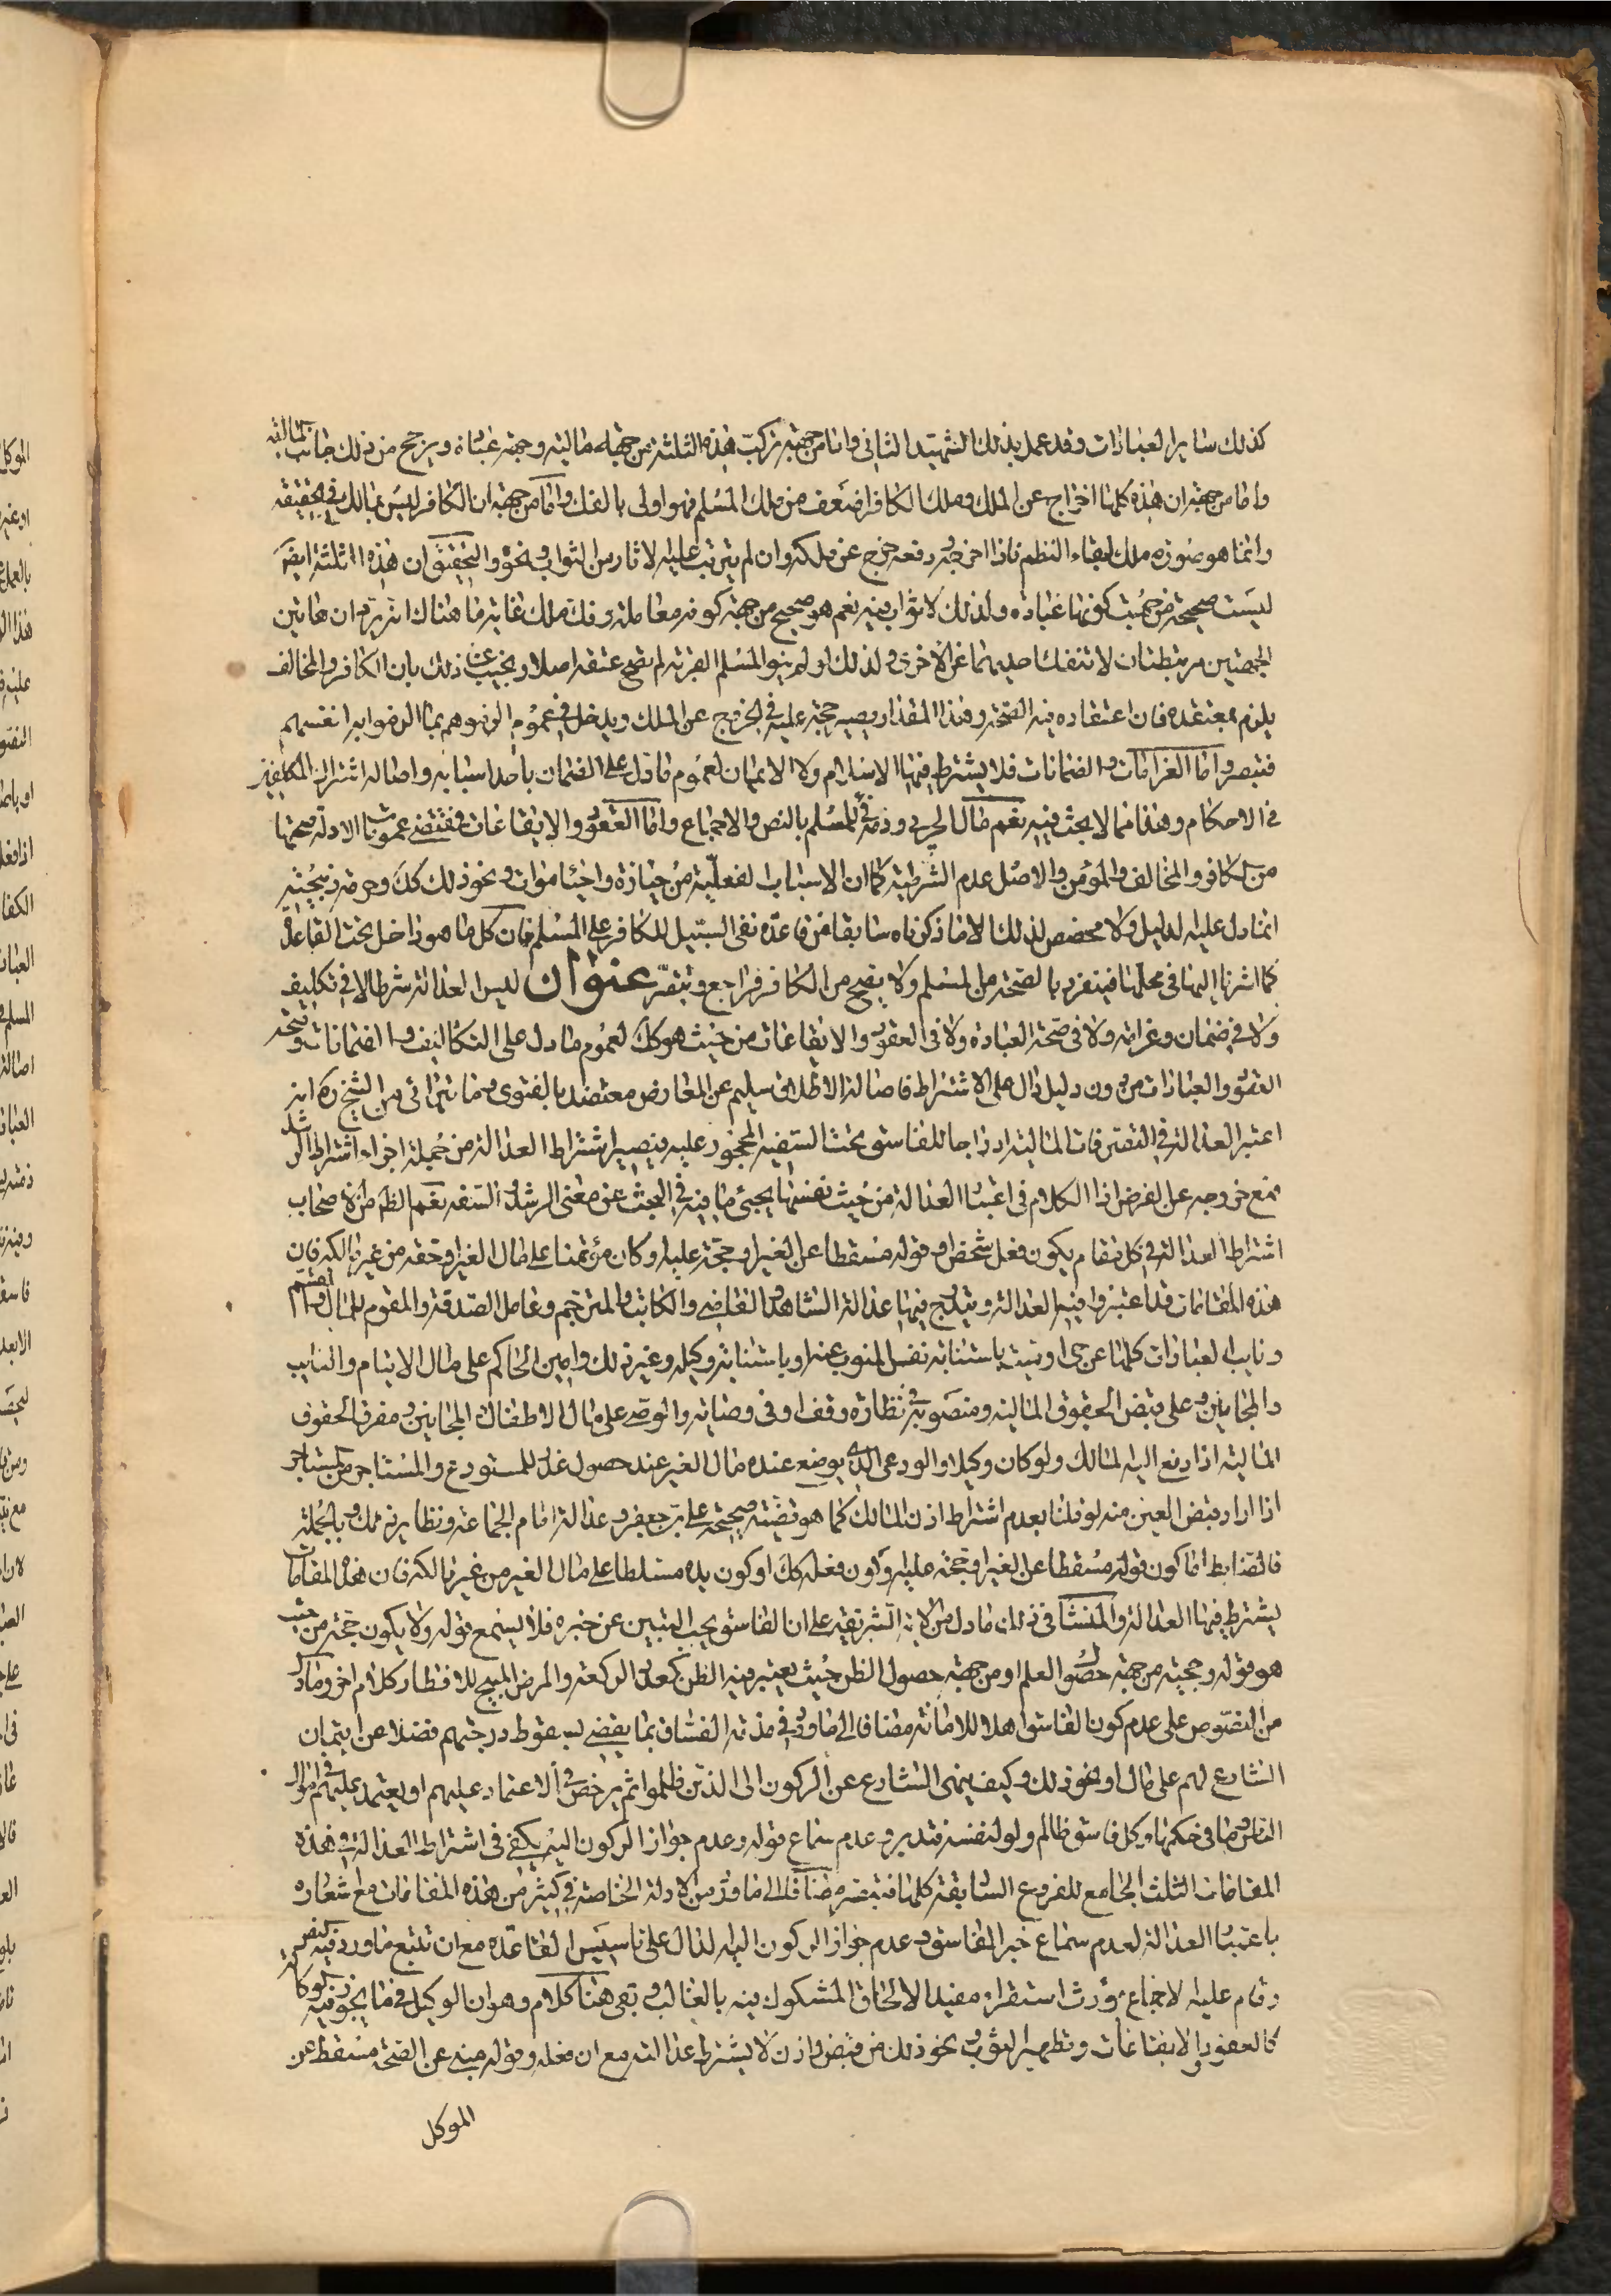 كذلك ساير العبادات وقد عمل بذلك الشهيد الثاني واما من جهة تركب هذه الثلثة من جهة مالية وجهة عبادة ويرجح من ذلك جانب المالية
واما من جهة ان هذه كلها اخراج عن الملك وملك الكافر اضعف من ملك المسلم فهو اولى بالفك واما من جهة ان الكافر ليس بمالك في الحقيقة
وانما هو صورة ملك لبقاء النظم فاذا اخرجه ودفعه خرج عن ملكه وان لم يترتب عليه الاثار من الثواب ونحوه والتحقيق ان هذه الثلثة ايضا
ليست صحيحة من حيث كونها عبادة ولذلك لا ثواب فيه نعم هو صحيح من جهة كونه معاملة وفك ملك غاية ما هناك انه يرد ان هاتين
الجهتين مرتبطتان لا تنفك احديهما عن الاخرى ولذلك لو لم ينو المسلم القربة لم يصح عتقه اصلا ويجيب عن ذلك بان الكافر والمخالف
يلزم بمعتقده فان اعتقاده فيه الصحة وهذا المقدار يصير حجة عليه في الخروج عن الملك ويدخل في عموم الزموهم بما الزموا به انفسهم
فتبصر واما الغرامات والضمانات فلا يشترط فيها الاسلام ولا الايمان لعموم ما دل على الضمان باحد اسبابه واصالة اشتراك المكلفين
في الاحكام وهذا مما لا بحث فيه نعم مال الحربي وذمته فئ للمسلم بالنص والاجماع واما العقود والايقاعات فمقتضى عمومات الادلة صحتها
من الكافر والمخالف والمؤمن والاصل عدم الشرطية كما ان الاسباب الفعلية من حيازة واحياء موات ونحو ذلك كك وحرمة ذبيحته
انما دل عليه الدليل ولا مخصص لذلك الا ما ذكرناه سابقا من قاعدة نفى السبيل للكافر على المسلم فان كل ما هو داخل تحت القاعدة
كما اشرنا اليها في محلها فينفرد بالصحة من المسلم ولا يصح من الكافر فراجع وتبصر عنوان ليس العدالة شرطا لا في تكليف
ولا في ضمان وغرامة ولا في صحة العبادة ولا في العقود والايقاعات من حيث هو كك لعموم ما دل على التكاليف والضمانات وصحة
العقود والعبادات من دون دليل دال على الاشتراط فاصالة الاطلاق سليم عن المعارض معتضدا بالفتوى وما يترائى من الشيخ ره انه
اعتبر العدالة في التصرفات المالية ادراجا للفاسق تحت السفيه المحجور عليه فيصير اشتراط العدالة من جملة اجزاء اشتراط الرشد
فمع خروجه عن الفرض اذ الكلام في اعتبار العدالة من حيث نفسها يجيئ ما فيه في البحث عن معنى الرشد والسفه نعم الظاهر من الاصحاب
اشتراط العدالة في كل مقام يكون فعل شخص او قوله مسقطا عن الغير او حجة عليه او كان مؤتمنا على مال الغير او حقه من غير مالكه فان
هذه المقامات قد اعتبروا فيها العدالة ويندرج فيها عدالة الشاهد والقاضى والكاتب والمترجم وعامل الصدقة والمقوم للمال والمقسم
ونايب العبادات كلها عن حى او ميت باستنابة نفس المنوب عنه او باستنابة وكيله وغير ذلك وامين الحاكم على مال الايتام والنايب
والمجانين وعلى قبض الحقوق المالية ومنصوبه في نظارة وقف او في وصاية والوصى على مال الاطفال المجانين ومفرق الحقوق
المالية اذا دفع اليه المالك ولو كان وكيلا والودعى الذي يوضع عنده مال الغير عند حصول عذر للمستودع والمستاجر من المستاجر
اذا اراد قبض العين منه لو قلنا بعدم اشتراط اذن المالك كما هو قضية صحيحة على بن جعفر وعدالة امام الجماعة ونظاير ذلك وبالجملة
فالضابط اما كون قوله مسقطا عن الغير او حجة عليه او كون فعله كك او كون يده مسلطا على مال الغير من غير مالكه فان هذه المقامات
يشترط فيها العدالة والمنشا في ذلك ما دل من الاية الشريفة على ان الفاسق يجب التبين عن خبره فلا يسمع قوله ولا يكون حجة من حيث
هو قوله وحجيته من جهة حصول العلم او من جهة حصول الظن حيث يعتبر فيه الظن كعدد الركعة والمرض المبيح للافطار كلام اخر وما دل
من النصوص على عدم كون الفاسق اهلا للامانة مضافا الى ما ورد في مذمة الفساق بما يقضى بسقوط درجتهم فضلا عن ايتمان
الشارع لهم على مال او نحو ذلك وكيف ينهى الشارع عن الركون الى الذين ظلموا ثم يرخص في الاعتماد عليهم او يعتمد عليهم في اموال
الناس وما في حكمها وكل فاسق ظالم ولو لنفسه فتدبر وعدم سماع قوله وعدم جواز الركون اليه يكفى في اشتراط العدالة في هذه
المقامات الثلث الجامع للفروع السابقة كلها فتبصر مضافا الى ما ورد من الادلة الخاصة في كثير من هذه المقامات مع اشعاره
باعتبار العدالة لعدم سماع خبر الفاسق وعدم جواز الركون اليه الدال على تاسيس القاعدة مع ان تتبع ما ورد فيه النص
وقام عليه الاجماع مورث استقراء مفيدا لالحاق المشكوك فيه بالغالب وبقى هنا كلام وهو ان الوكيل في ما يجوز فيه الوكالة
كالعقود والايقاعات وتطهير الثوب ونحو ذلك من قبض واذن لا يشترط عدالته مع ان فعله وقوله مبنى عن الصحة مسقط عن
الموكل